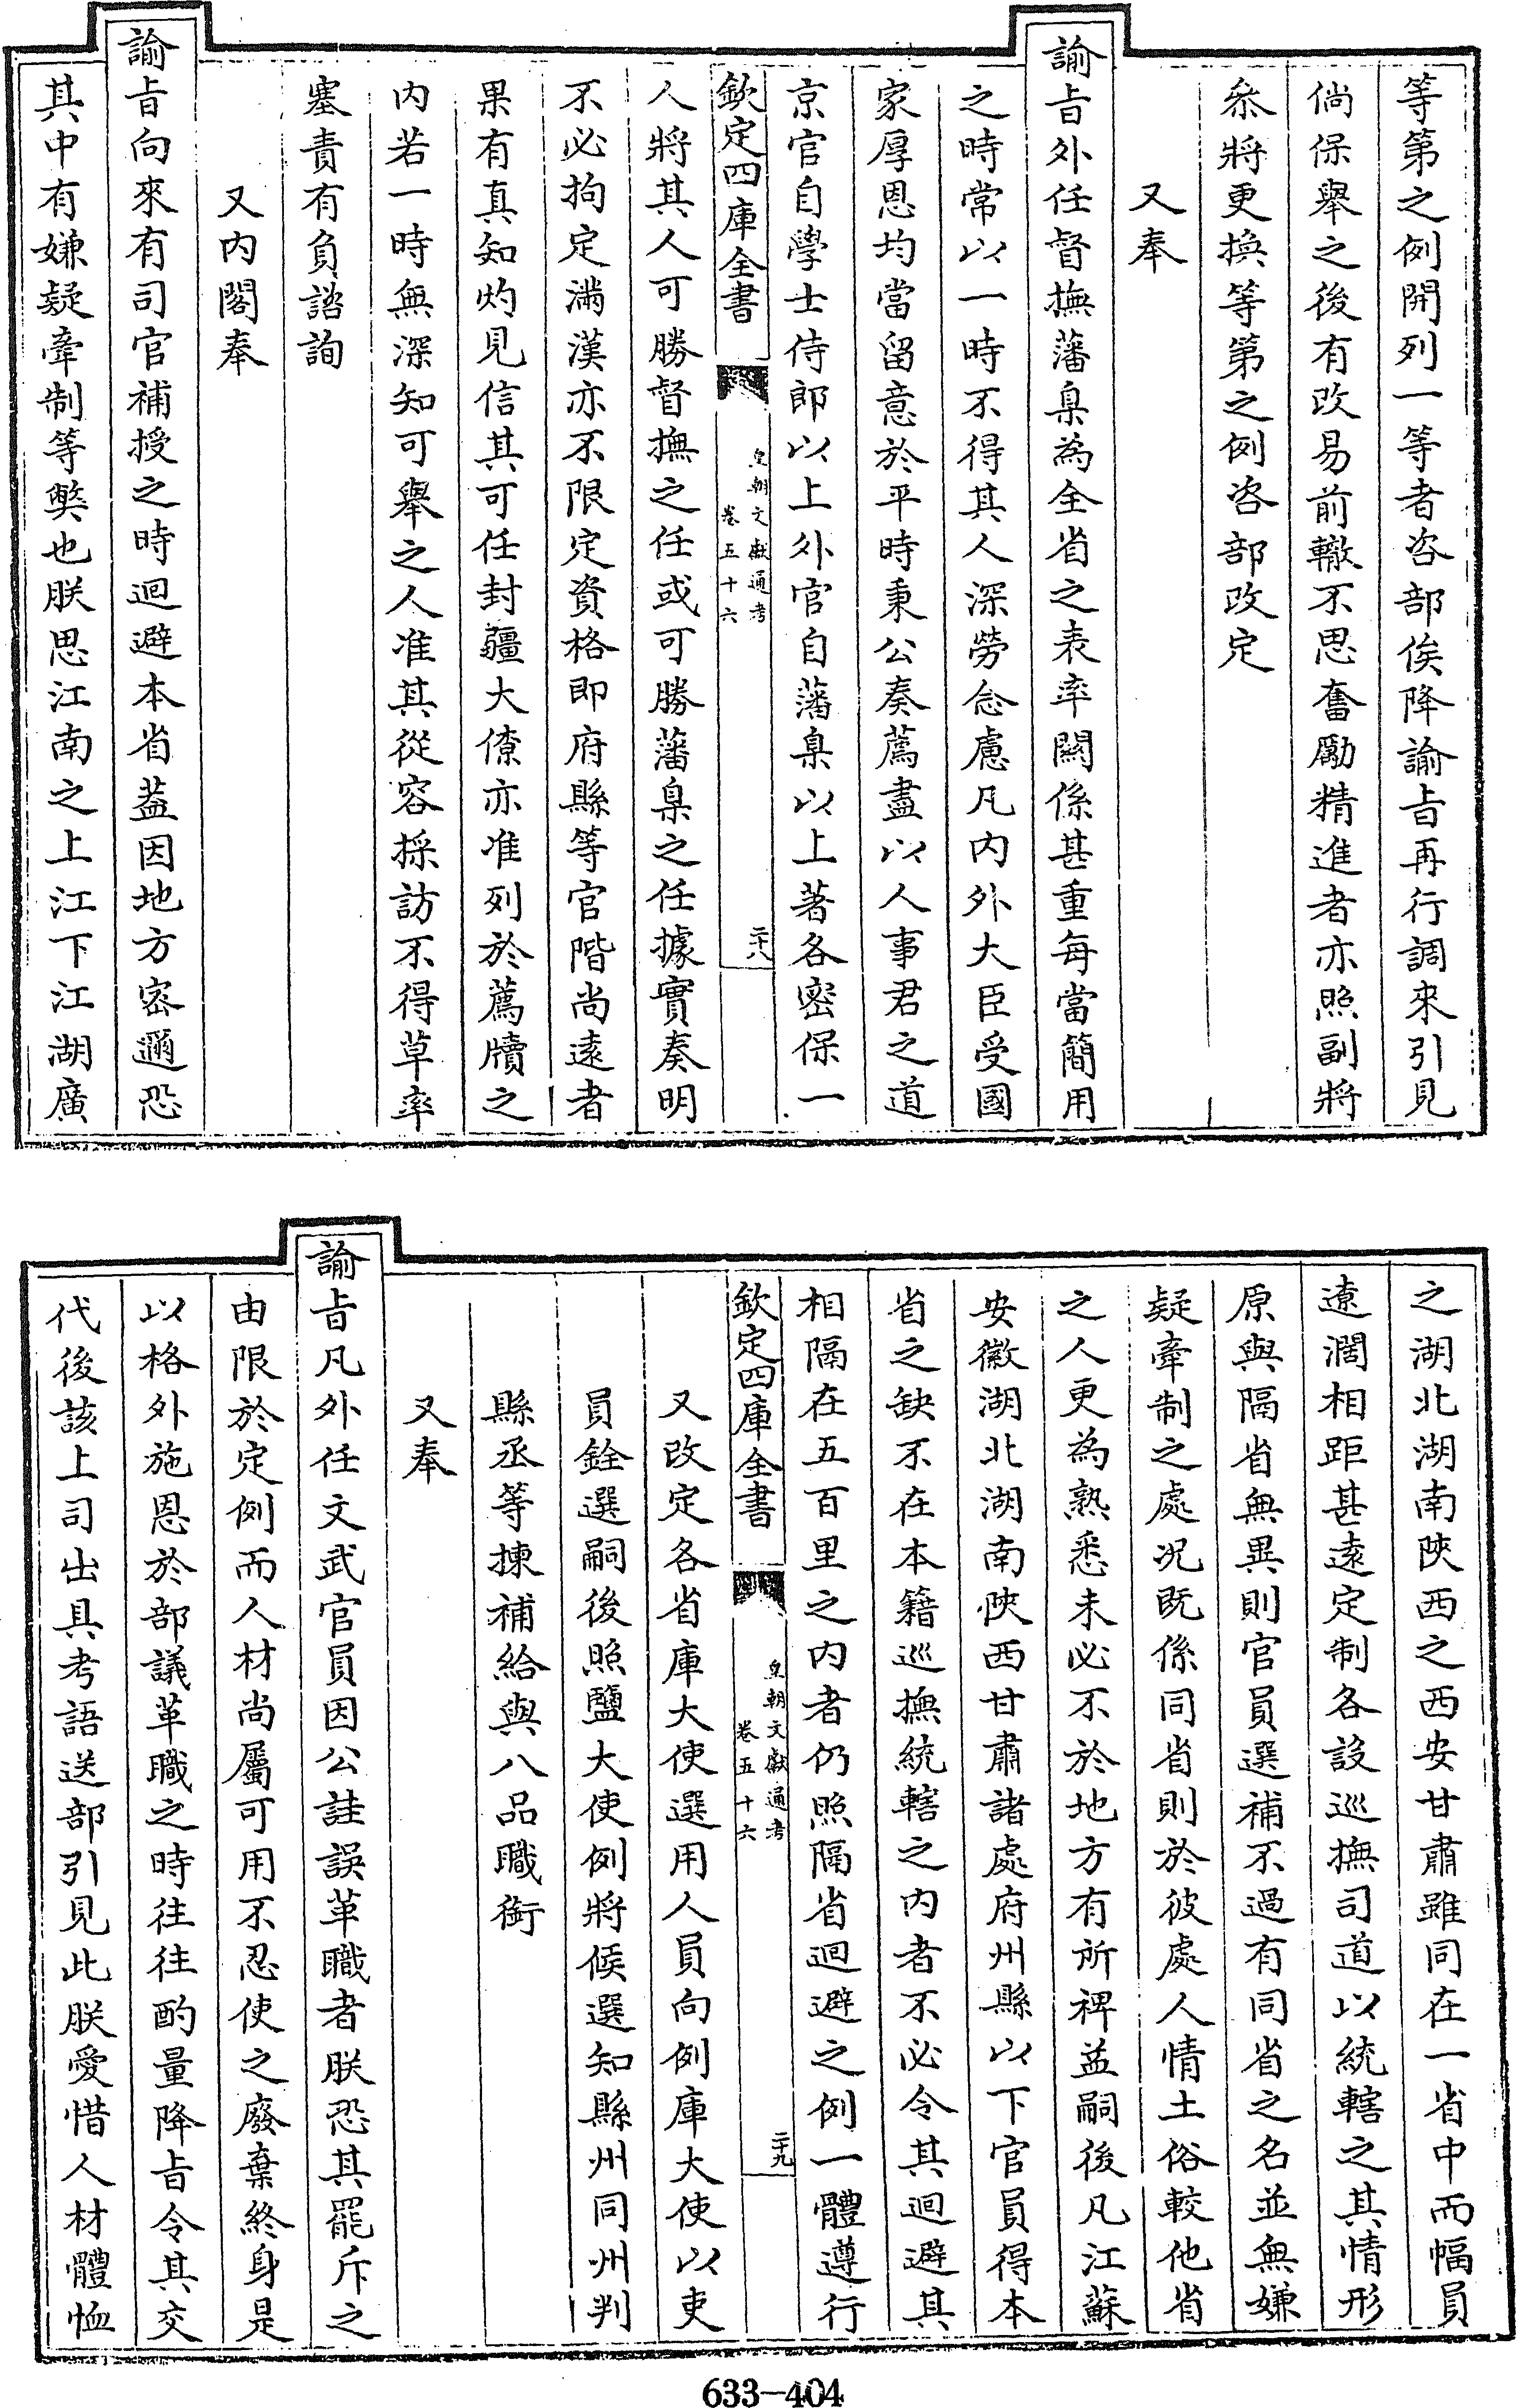 等第之例開列一等者咨部俟降諭㫖再行調來引見
倘保舉之後有改易前轍不思奮勵精進者亦照副將
叅將更換等第之例咨部改定
又奉
諭㫖外任督撫藩臬為全省之表率關係甚重每當簡用
之時常以一時不得其人深勞念慮凡内外大臣受國
家厚恩均當留意於平時秉公奏薦盡以人事君之道
京官自學士侍郎以上外官自藩臬以上著各密保一
欽定四庫全書
皇朝文獻通考
卷五十六
二十八
人將其人可勝督撫之任或可勝藩臬之任據實奏明
不必拘定滿漢亦不限定資格即府縣等官階尚遠者
果有真知灼見信其可任封疆大僚亦准列於薦牘之
内若一時無深知可舉之人准其從容採訪不得草率
塞責有負諮詢
又内閣奉
諭㫖向來有司官補授之時迴避本省葢因地方密邇恐
其中有嫌疑牽制等獘也朕思江南之上江下江湖廣
之湖北湖南陜西之西安甘肅雖同在一省中而幅員
遼濶相距甚遠定制各設巡撫司道以統轄之其情形
原與隔省無異則官員選補不過有同省之名並無嫌
疑牽制之處况既係同省則於彼處人情土俗較他省
之人更為熟悉未必不於地方有所裨益嗣後凡江蘇
安徽湖北湖南陜西甘肅諸處府州縣以下官員得本
省之缺不在本籍巡撫統轄之内者不必令其迴避其
相隔在五百里之内者仍照隔省迴避之例一體遵行
欽定四庫全書
皇朝文獻通考
卷五十六
二十九
又改定各省庫大使選用人員向例庫大使以吏
員銓選嗣後照鹽大使例將候選知縣州同州判
縣丞等揀補給與八品職銜
又奉
諭㫖凡外任文武官員因公詿誤革職者朕恐其罷斥之
由限於定例而人材尚屬可用不忍使之廢棄終身是
以格外施恩於部議革職之時往往酌量降㫖令其交
代後該上司出具考語送部引見此朕愛惜人材體恤
633-404